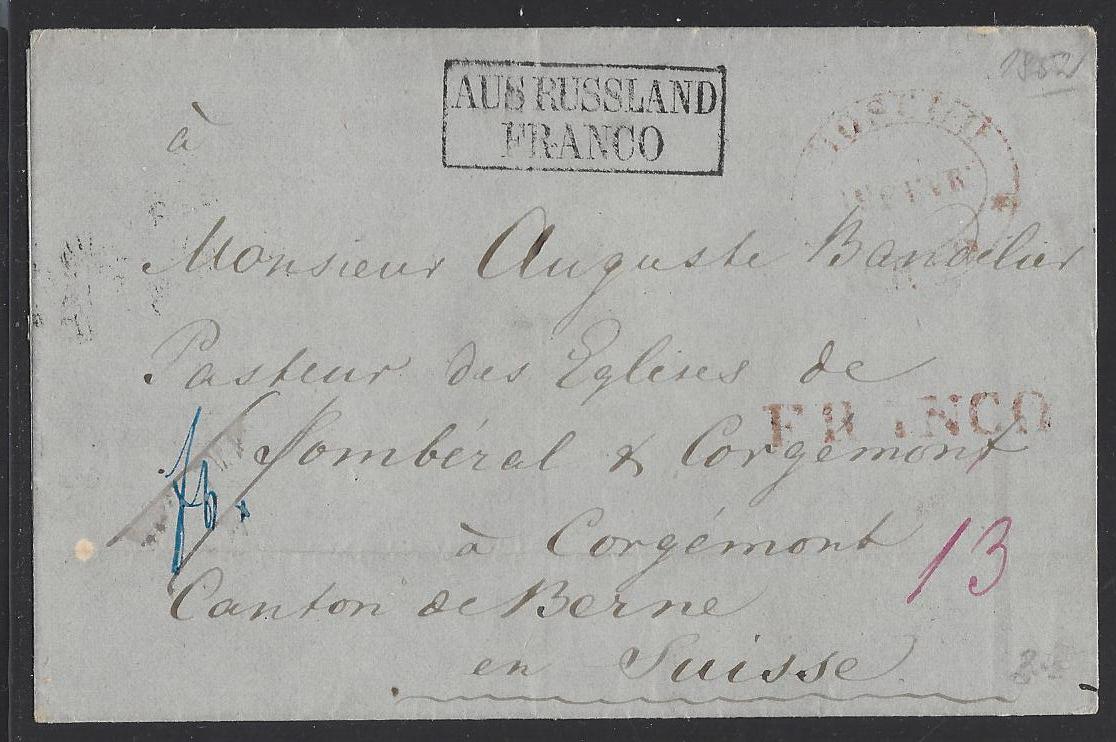 AUS RUSSLAND
FRANCO
1852
à
Monsieur Auguste Bandelier
Pasteur des Eglises de
FRANCO
Sombéval & Corgémont
à Corgémont
13
Canton de Berne
en Suisse